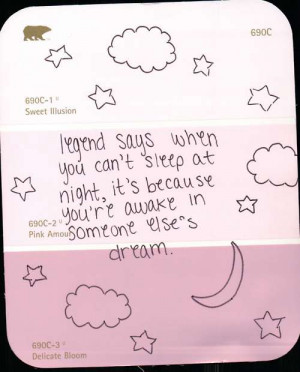 690C
690C-1
Sweet Illusion
legend says when
you can't sleep at
night, it's because
you're awake in
690C-2
Pink Amou
someone else's
dream.
690C-3
Delicate Bloom